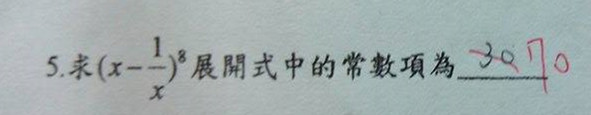 5.求(x-1/x)^8展開式中的常數項為 30 70